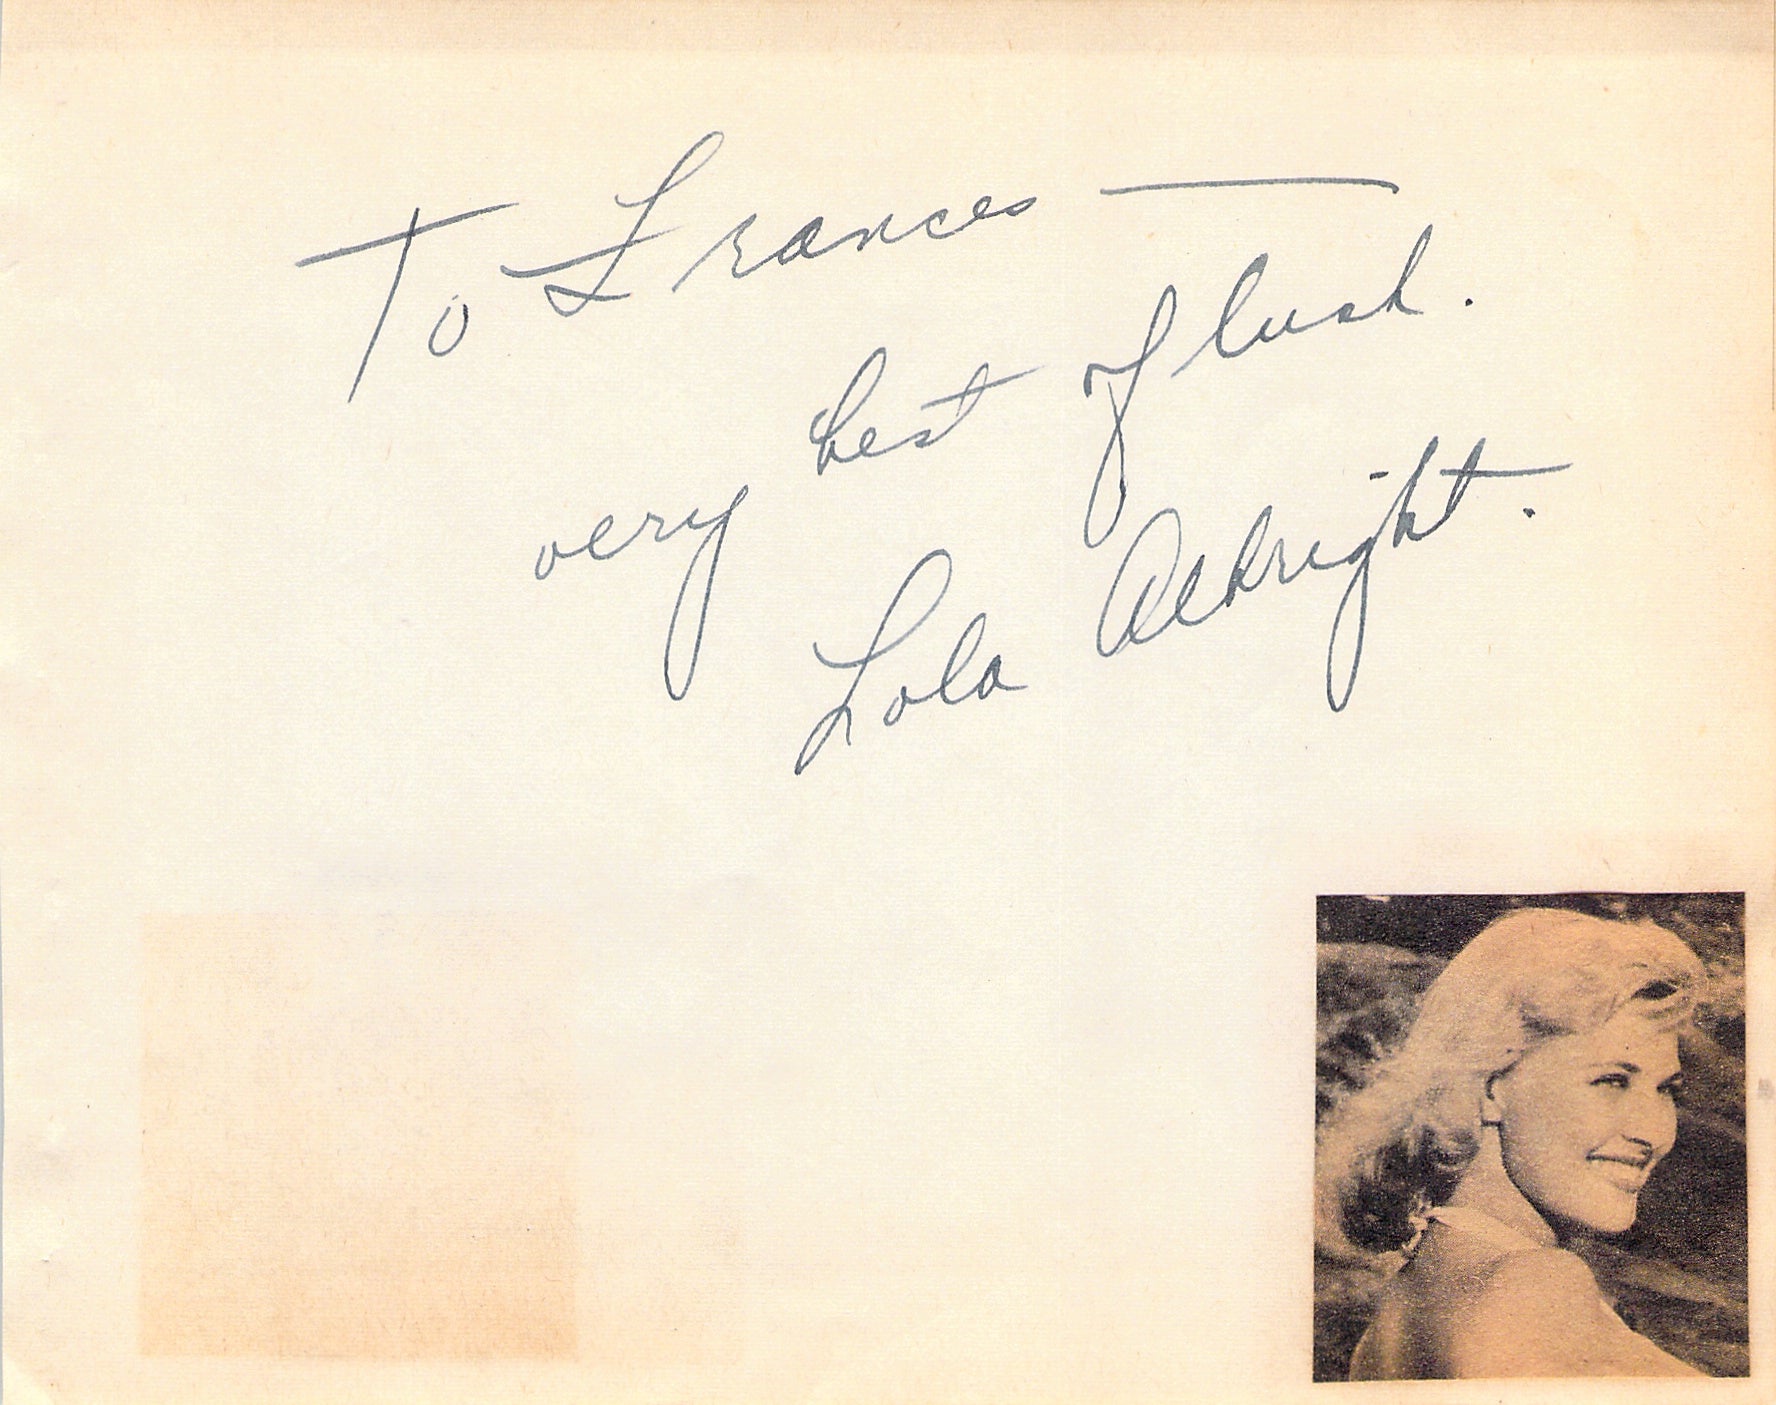 To Frances —
very best of luck.
Lola Albright.